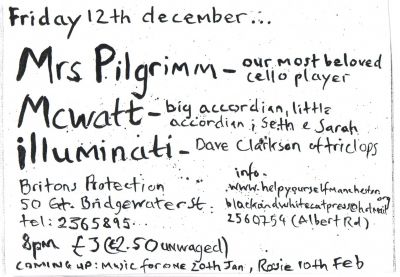 Friday 12th december...
Mrs Pilgrimm - our most beloved cello player
Mcwatt - big accordian, little accordian ; Seth & Sarah
illuminati - Dave Clarkson of triclops
Britons Protection
50 Gt. Bridgewater St.
tel: 2365895
info-
www.helpyourselfmanchester.org
blackandwhitecatpress@hotmail
2560754 (Albert Rd)
8pm £3 (£2.50 unwaged)
COMING UP: Music for one 20th Jan, Rosie 10th Feb